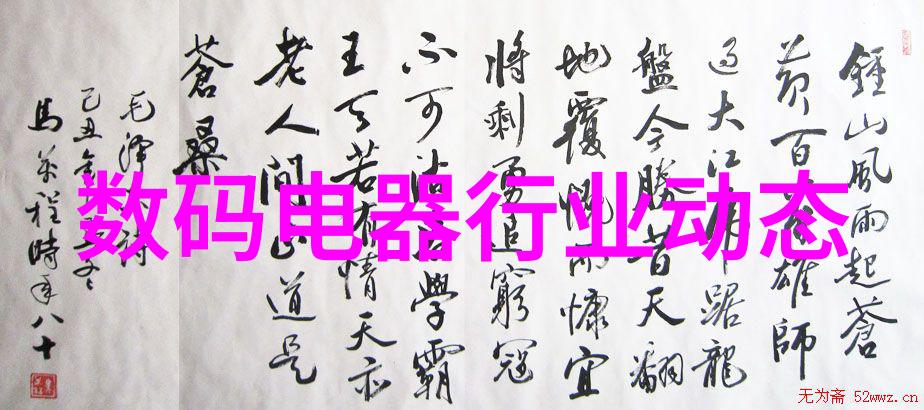 鍾山風雨起蒼
黄百雄師
过大江踞龍
盤今勝昔天翻
地覆慨而慷宜
将剩勇追窮寇
不可沽名學霸
王天若有情天亦
老人間正道是
蒼桑
毛澤东诗
己丑
馬程時年八十
数码电器行业动态
无为斋 52wwz.cn